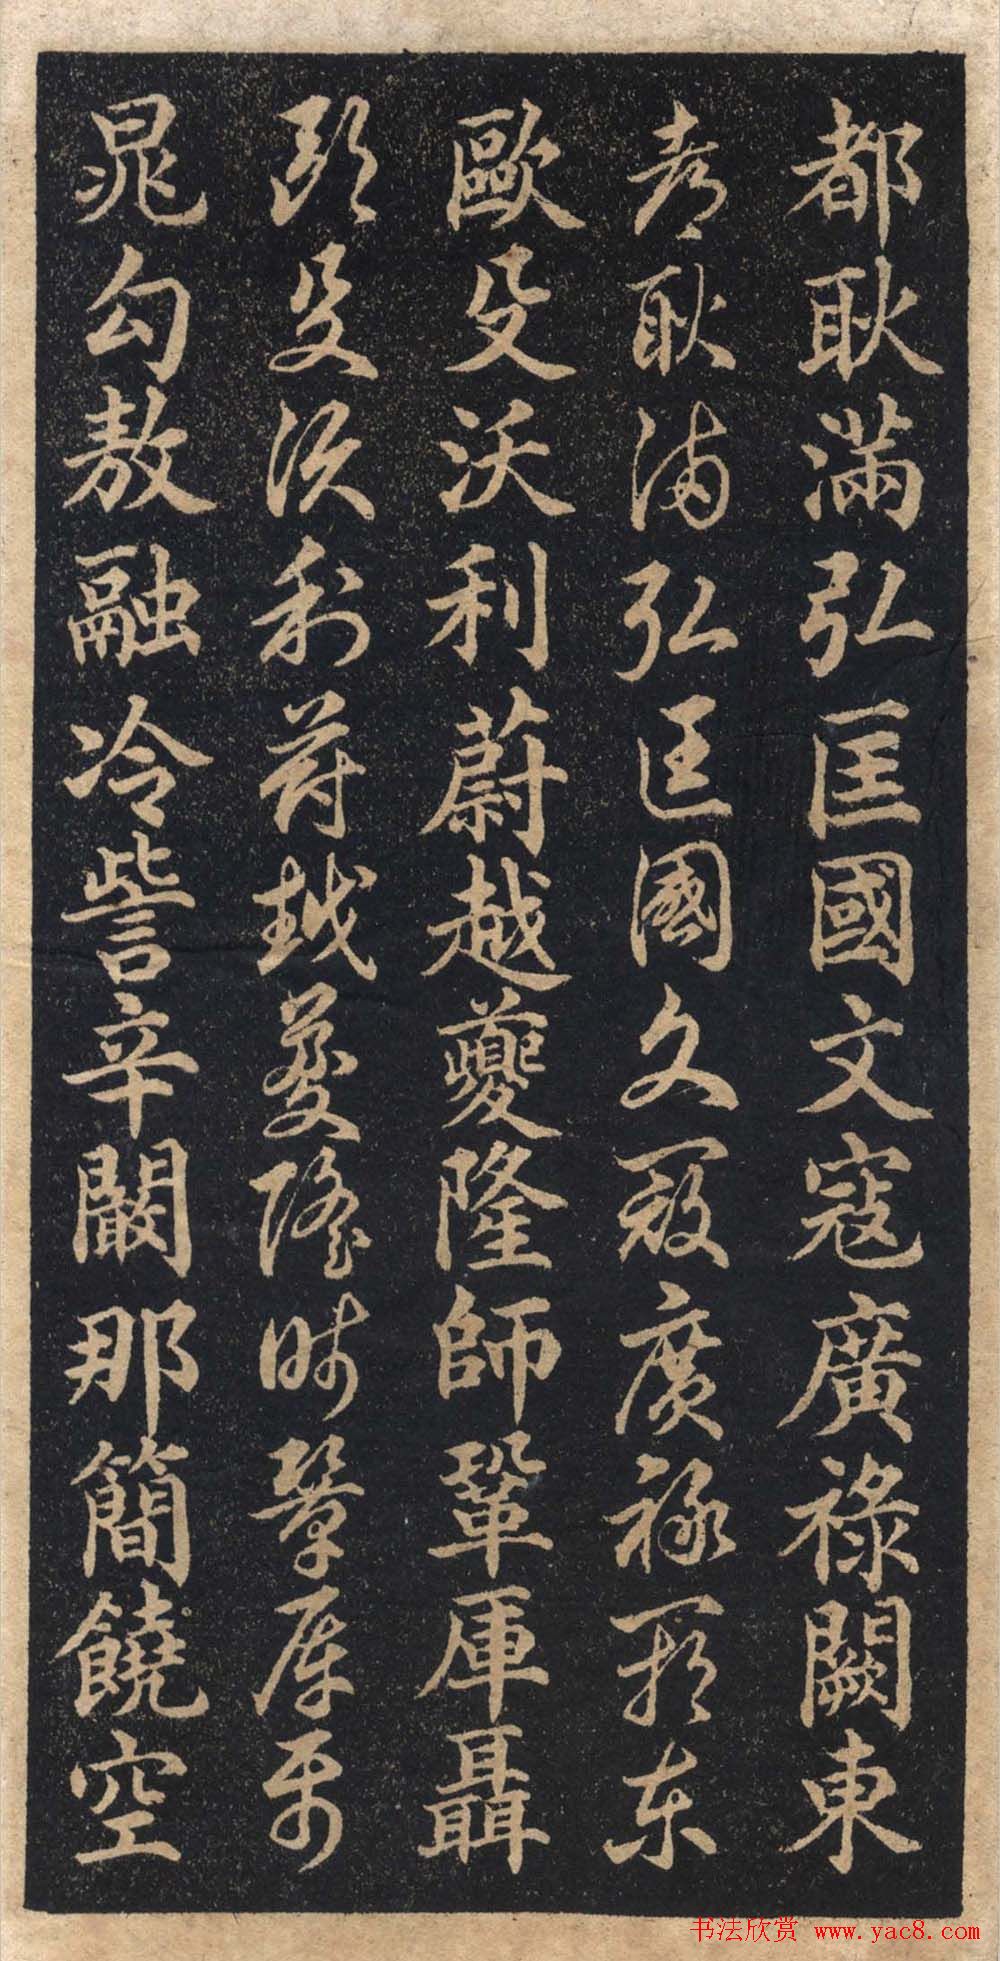 都耿滿弘匡國文寇廣祿闕東
都耿滿弘匡國文寇廣祿闕東
歐殳沃利蔚越夔隆師鞏厙聶
歐殳沃利蔚越夔隆師鞏厙聶
晁勾敖融冷訾辛闞那簡饒空
书法欣赏 www.yac8.com